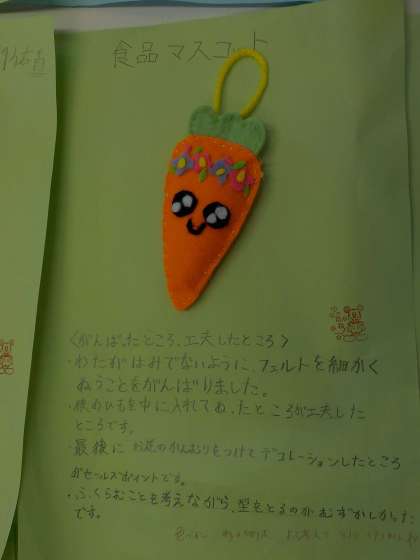 食品マスコット
〈がんばったところ、工夫したところ〉
・わたがはみでないように、フェルトを細かく
ぬうことをがんばりました。
ひもを中に入れてぬったところが工夫した
ところです。
・最後にお花のかんむりをつけてデコレーションしたところ
がセールスポイントです。
・ふくらむことも考えながら、型をとるのがむずかしかった
です。